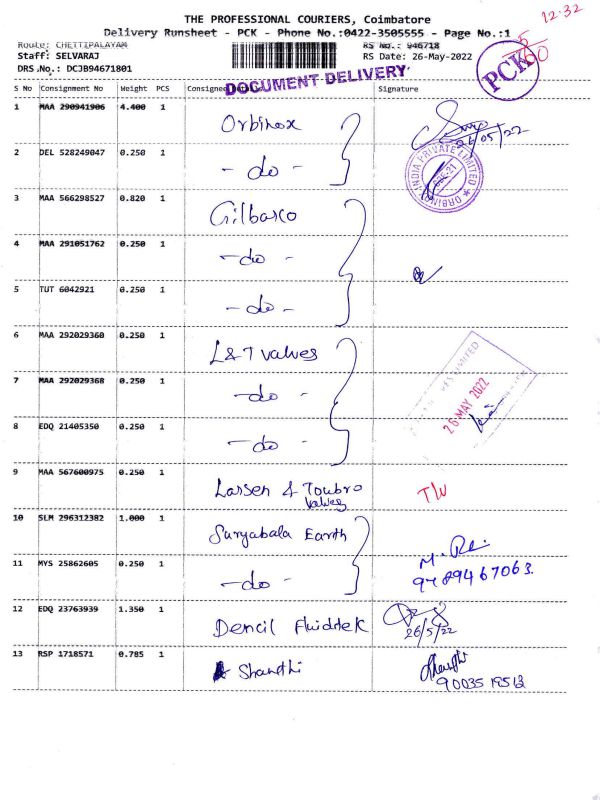 12:32
THE PROFESSIONAL COURIERS, Coimbatore
Delivery Runsheet - PCK - Phone No.:0422-3505555 - Page No.:1
5/60
Route: CHETTIPALAYAM RS No.: 946718
Staff: SELVARAJ RS Date: 26-May-2022
DRS.No.: DCJB94671801
DOCUMENT DELIVERY
PCK
S No Consignment No Weight PCS Consignee Signature
1 MAA 290941906 4.400 1 Orbinox
26/05/22
2 DEL 528249047 0.250 1 - do -
ORBINOX INDIA PRIVATE LIMITED
3 MAA 566298527 0.820 1 Gilbasco
4 MAA 291051762 0.250 1 - do -
5 TUT 6042921 0.250 1 - do -
6 MAA 292029360 0.250 1 L&T valves
7 MAA 292029368 0.250 1 - do -
26 MAY 2022
8 EDQ 21405350 0.250 1 - do -
9 MAA 567600975 0.250 1 Larsen & Toubro
valves
10 SLM 296312382 1.000 1 Suryabala Earth
11 MYS 25862605 0.250 1 - do -
9789467063
12 EDQ 23763939 1.350 1 Dencil Fluidtek
26/5/22
13 RSP 1718571 0.785 1 Shanthi